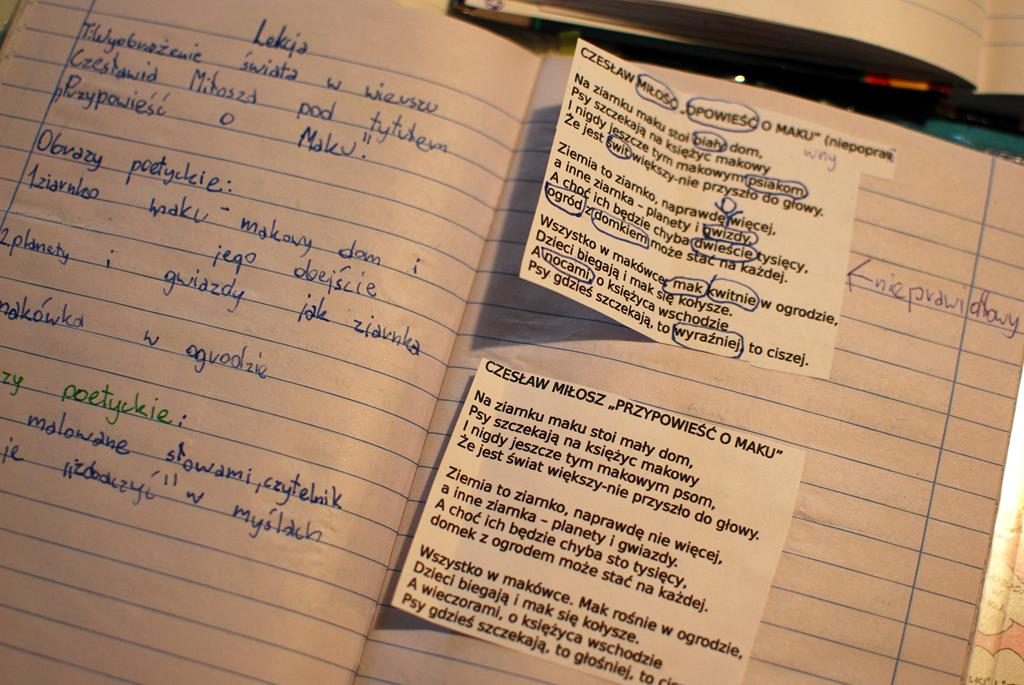 Lekcja
T:Wyobrażenie świata w wierszu
Czesława Miłosza pod tytułem
„Przypowieść o Maku".
Obrazy poetyckie:
1.ziarnko maku - makowy dom i
jego obejście
2.planety i gwiazdy jak ziarnka
makówka w ogrodzie
zy poetyckie:
malowane słowami, czytelnik
je "zobaczyć" w
myślach
CZESŁAW MIŁOŚĆ „OPOWIEŚĆ O MAKU" (niepopraw
wny
Na ziarnku maku stoi biały dom,
Psy szczekają na księżyc makowy
I nigdy jeszcze tym makowym psiakom
Że jest świt większy-nie przyszło do głowy.
Ziemia to ziarnko, naprawdę więcej,
a inne ziarnka – planety i gwizdy,
A choć ich będzie chyba dwieście tysięcy,
ogród z domkiem może stać na każdej.
Wszystko w makówce, mak kwitnie w ogrodzie,
Dzieci biegają i mak się kołysze.
A nocami, o księżyca wschodzie
Psy gdzieś szczekają, to wyraźniej, to ciszej.
← nieprawidłowy
CZESŁAW MIŁOSZ „PRZYPOWIEŚĆ O MAKU"
Na ziarnku maku stoi mały dom,
Psy szczekają na księżyc makowy
I nigdy jeszcze tym makowym psom,
Że jest świat większy-nie przyszło do głowy.
Ziemia to ziarnko, naprawdę nie więcej,
a inne ziarnka – planety i gwiazdy.
A choć ich będzie chyba sto tysięcy,
domek z ogrodem może stać na każdej.
Wszystko w makówce. Mak rośnie w ogrodzie,
Dzieci biegają i mak się kołysze.
A wieczorami, o księżyca wschodzie
Psy gdzieś szczekają, to głośniej, to cis